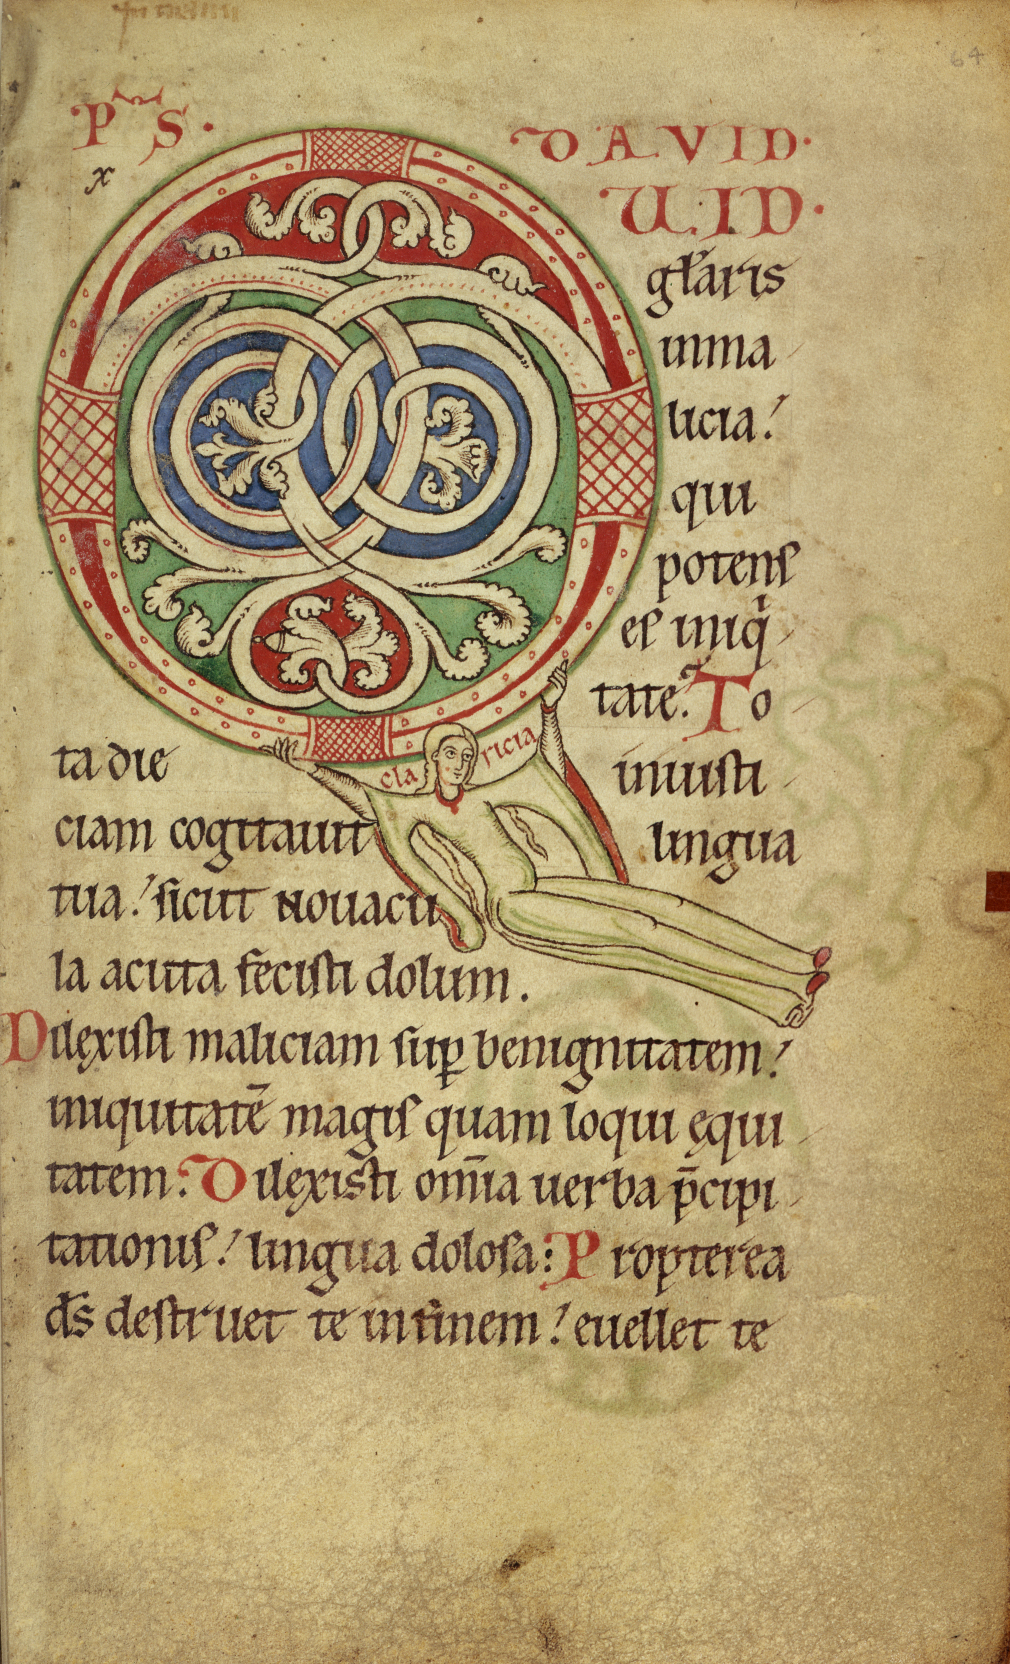 PS. DAVID.
x
QUID.
gl̄aris
inma
licia!
qui
potens
es iniq̇
tate. To
ta die iniusti
ciam cogitauit lingua
tua! sicut nouacu
la acuta fecisti dolum.
Dilexisti maliciam sup̱ benignitatem!
iniquitatē magis quam loqui ęqui
tatem. Dilexisti om̄ia uerba p̄cipi
tationis! lingua dolosa: Propterea
d̄s destruet te in finem! euellet te
claricia
64